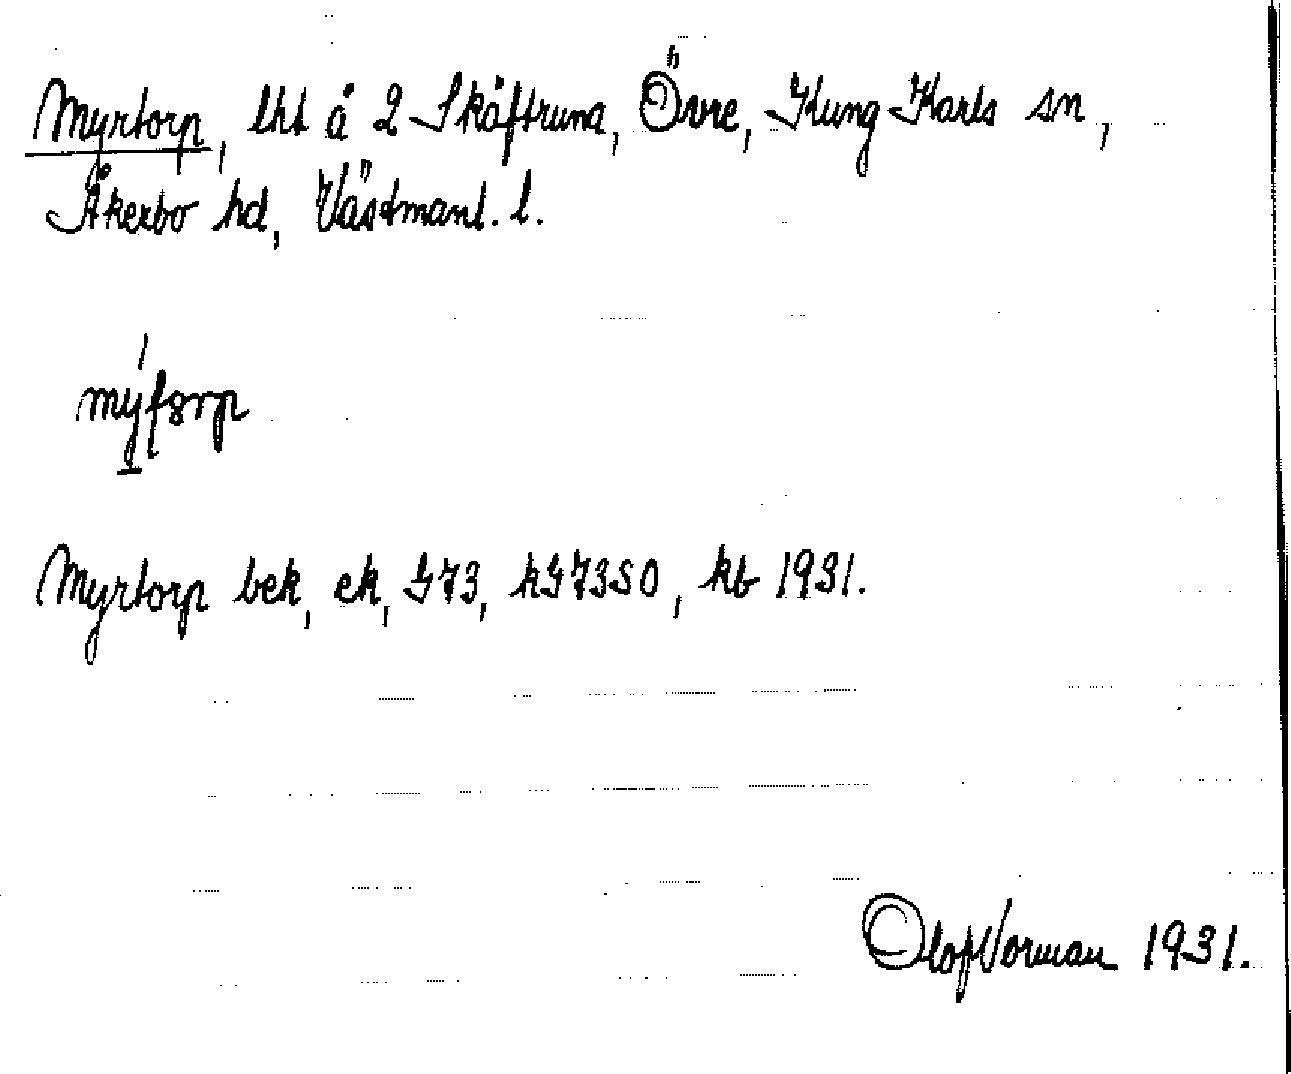 Myrtorp, lht å 2 Skäftruna, Övre, Kung Karls sn,
Åkerbo hd, Västmanl. l.
Myrtorp bek, ek, G73, kG73SO, kb 1931.
Olof Vorman 1931.